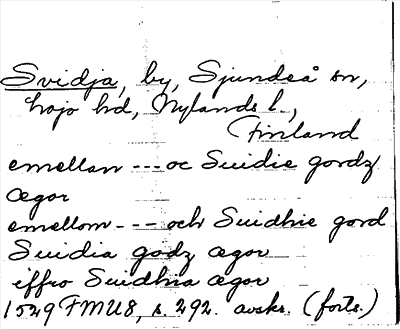 Svidja, by, Sjundeå sn,
Lojo hd, Nylands l.,
Finland
emellan --- oc Suidie gordz
ægor
emellom --- och Suidhie gord
Suidia godz ægor
iffro Suidhia ægor
1529 FMU8, s. 292. avskr. (forts.)